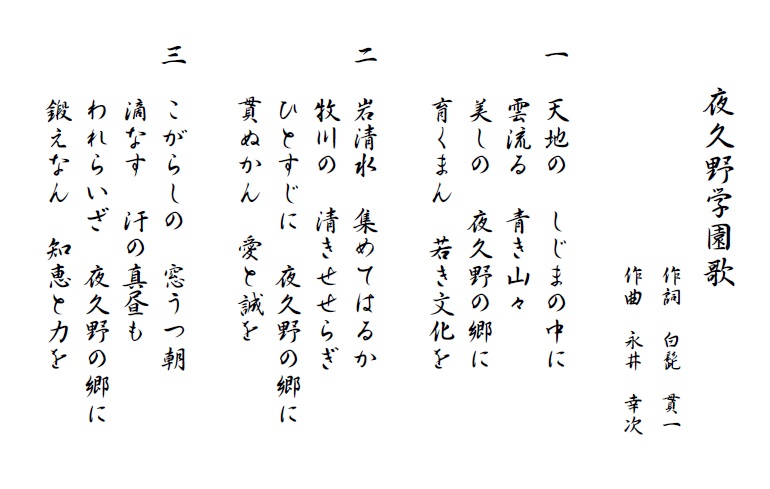 夜久野学園歌
作詞　白髭　貫一
作曲　永井　幸次
一　天地の　しじまの中に
雲流る　青き山々
美しの　夜久野の郷に
育くまん　若き文化を
二　岩清水　集めてはるか
牧川の　清きせせらぎ
ひとすじに　夜久野の郷に
貫ぬかん　愛と誠を
三　こがらしの　窓うつ朝
滴なす　汗の真昼も
われらいざ　夜久野の郷に
鍛えなん　知恵と力を